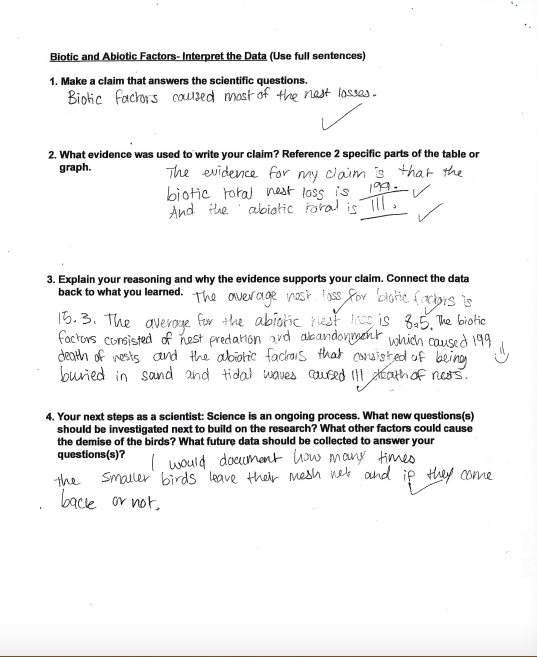 Biotic and Abiotic Factors- Interpret the Data (Use full sentences)
1. Make a claim that answers the scientific questions.
Biotic factors caused most of the nest losses.
2. What evidence was used to write your claim? Reference 2 specific parts of the table or
graph.
The evidence for my claim is that the
biotic total nest loss is 199.
And the abiotic total is 111.
3. Explain your reasoning and why the evidence supports your claim. Connect the data
back to what you learned.
The average nest loss for biotic factors is
15.3. The average for the abiotic nest loss is 8.5. The biotic
factors consisted of nest predation and abandonment which caused 199
death of nests and the abiotic factors that consisted of being
buried in sand and tidal waves caused 111 death of nests.
4. Your next steps as a scientist: Science is an ongoing process. What new questions(s)
should be investigated next to build on the research? What other factors could cause
the demise of the birds? What future data should be collected to answer your
questions(s)?
I would document how many times
the smaller birds leave their mesh net and if they come
back or not.